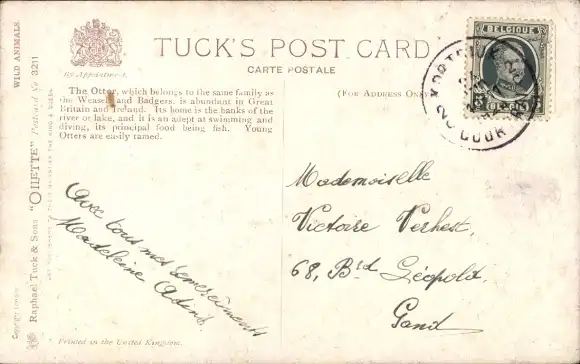 TUCK'S POST CARD
CARTE POSTALE
By Appointment.
(FOR ADDRESS ON
The Otter, which belongs to the same family as
the Weasel and Badgers, is abundant in Great
Britain and Ireland. Its home is the banks of the
river or lake, and it is an adept at swimming and
diving, its principal food being fish. Young
Otters are easily tamed.
WILD ANIMALS.
"OILETTE" Postcard No 3211
Raphael Tuck & Sons
Avec tous mes remerciements
Madeleine
Printed in the United Kingdom.
Mademoiselle
Victoire Verhest.
68, Bd Léopold.
Gand
BELGIQUE
KORTR
COURTR